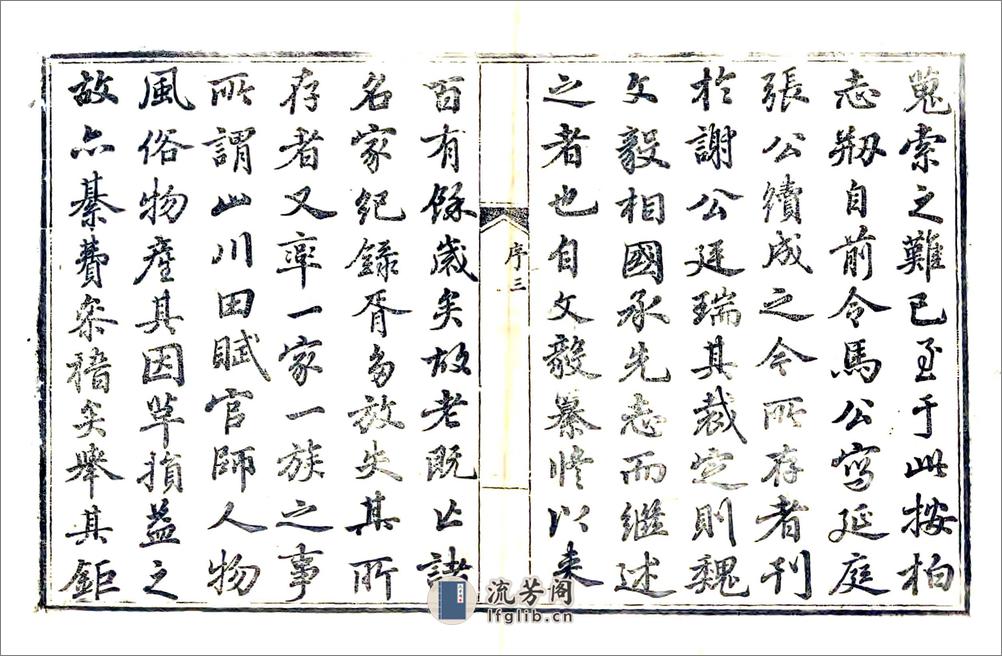 蒐索之難已至于此按柏
志刱自前令馬公寫延庭
張公續成之今所存者刊
於謝公廷瑞其裁定則魏
文毅相國承先志而繼述
之者也自文毅纂修以来
序三
百有餘歲矣故老既亡諸
名家紀錄胥多放失其所
存者又率一家一族之事
所謂山川田賦官師人物
風俗物産其因革損益之
故亦綦費桒稽矣舉其鉅
流芳阁
lfglib.cn